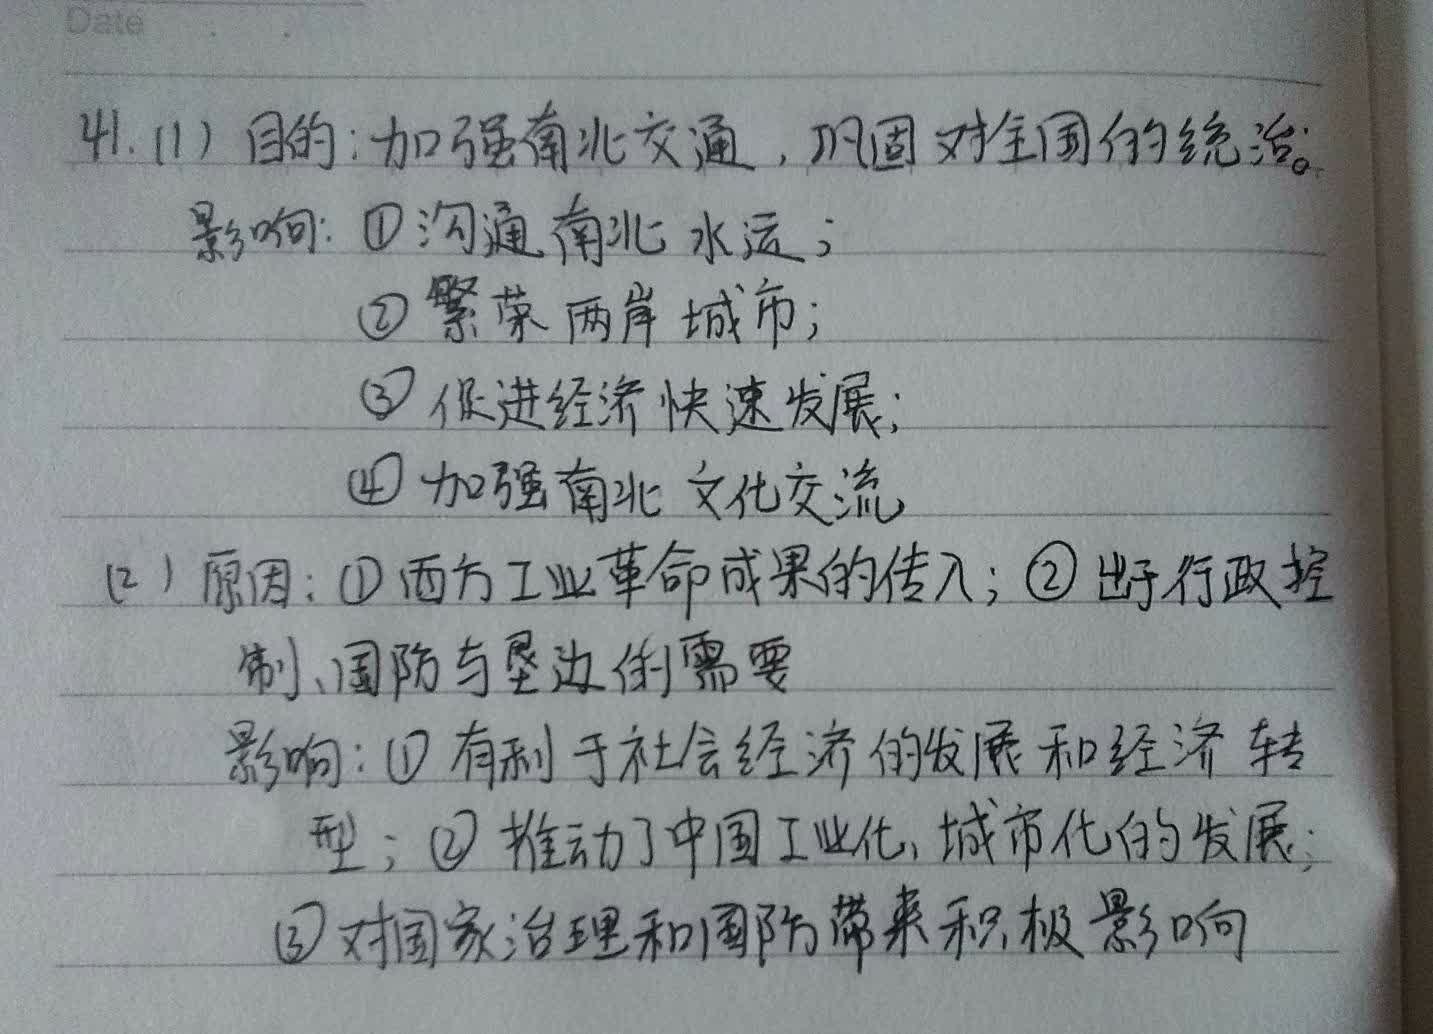 Date
41.(1) 目的:加强南北交通,巩固对全国的统治。
影响: ①沟通南北水运;
②繁荣两岸城市;
③促进经济快速发展;
④加强南北文化交流
(2) 原因: ①西方工业革命成果的传入; ②出于行政控
制、国防与垦边的需要
影响: ①有利于社会经济的发展和经济转
型; ②推动了中国工业化、城市化的发展;
③对国家治理和国防带来积极影响